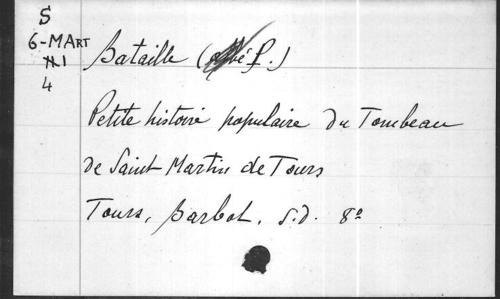 S
6-MArt
1
4
Bataille (abbé P.)
Petite histoire populaire du Tombeau
de Saint Martin de Tours
Tours, Barbot, s.d. 8º